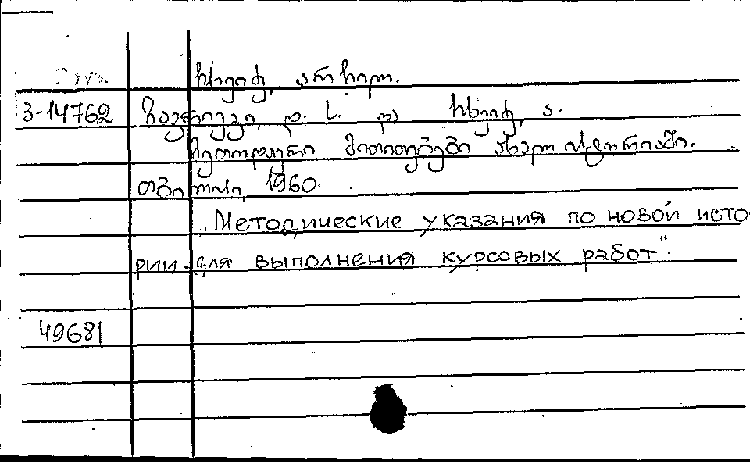 ჩხეიძე, არჩილ.
3-14762 ზავრიევი, დ. ს. და ჩხეიძე, ა.
მეთოდური მითითებები ახალ ისტორიაში.
თბილისი, 1960.
„Методические указания по новой исто
рии для выполнения курсовых работ".
49681